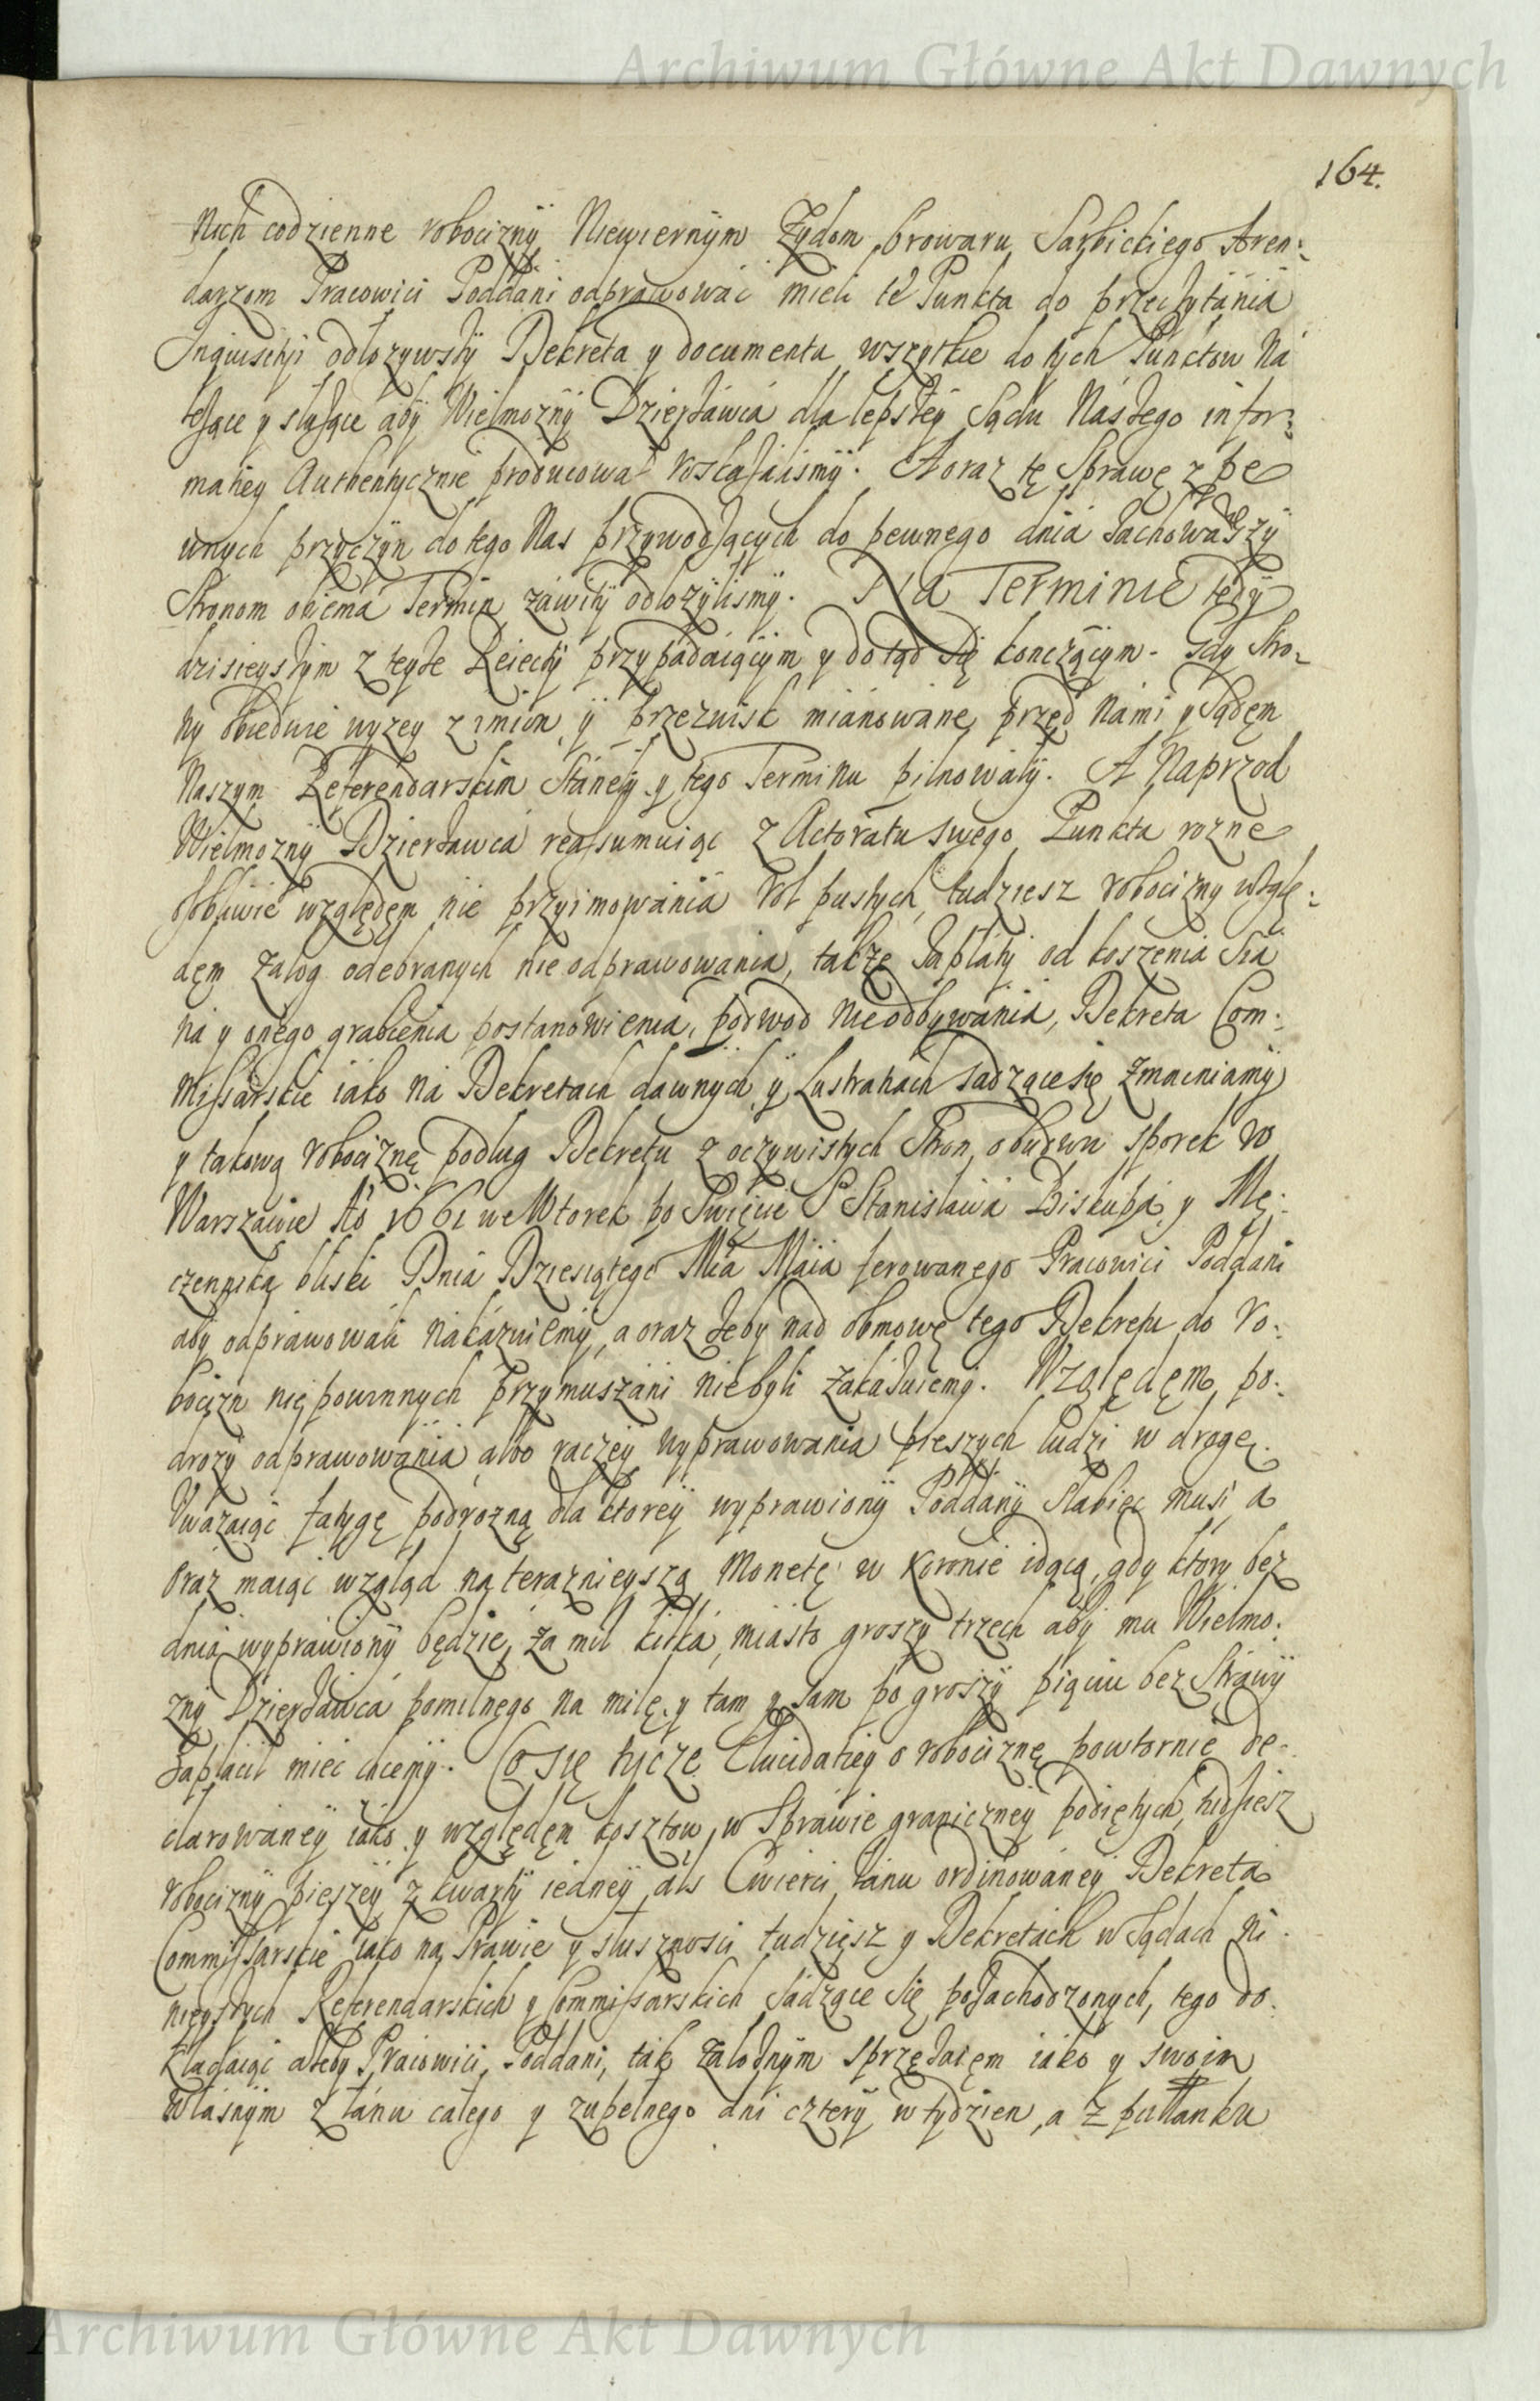 Archiwum Główne Akt Dawnych
164.
Nich codzienne robocizny Niewiernym Zydom browaru Sarbickiego Aren:
darzom Pracowici Poddani odprawować mieli te Punkta do przeczytánia
Inquisityi odłozywszy Dekreta y documenta wszytkie do tych Punctow Ná
leżące y służące aby Wielmozny Dzierżáwcá dla lepszey Sądu Nászego infor:
matiey Authentycznie producował roskazálismy. A oraz tę Sprawę z pe
wnych przyczyn do tego Nas przywodzących do pewnego dniá zachowawszy
Stronom obiemá Termin záwity odłozylismy. Na Terminie tedy
dzisieyszym z teyże Reiecty przypádaiącym y dotąd się konczącym. Gdy Stro:
ny obiedwie wyzey z imion y przezwisk miánowáne przed Námi y Sądem
Naszym Referendarskim Stánęły y tego Terminu pilnowáły. A Naprzod
Wielmozny Dzierżawcá reassumuiąc z Actoratu swego Punkta rozne
osobliwie względem nie przyimowániá Rol pustych tudziesz robocizny wzglę:
dem załog odebranych nie odprawowania, także zapłáty od koszenia Siá
ná y onego grabienia postanowienia, podwod nieodbywániá, Dekreta Com:
missarskie iáko ná Dekretach dawnych y Lustratiach sadzące się zmacniamy
y takową robociznę podług Dekretu z oczywistych Stron obudwu sporek w
Warszáwie Ao 1661 we Wtorek po Swięcie S Stanisławá Biskupá y Mę:
czenniká bliski Dniá Dziesiątego Mca Máiá ferowanego Pracowici Poddáni
aby odprawowali nakázuiemy, a oraz żeby nad obmowę tego Dekretu do ro:
bocizn nie powinnych przymuszáni nie byli zakázuiemy. Względem po:
drozy odprawowánia albo raczey wyprawowania pieszych ludzi w drogę.
Uwazaiąc fatygę podrozną dla ktorey wyprawiony Poddány słabiec musi, a
oraz maiąc wzgląd na teraznieyszą Monetę w Koronie idącą, gdy ktory bez
dniá wyprawiony będzie, za mil kilká, miásto groszy trzech aby mu Wielmo:
zny Dzierżáwcá pomilnego na milę y tam y sam po groszy piąciu bez Stráwy
zapłacił miec chcemy. Co się tycze Elucidatiey o robociznę powtornie de:
clarowaney iáko y względem kosztow w Spráwie graniczney podiętych, tudziesz
robocizny pieszey z kwarty iedney als Cwierci łánu ordinowáney Dekreta
Commissarskie iako na Prawie y słusznosci tudziesz y Dekretach w Sądach Ni:
nieyszych Referendarskich y Commissarskich sádzące się pozachodzonych, tego do:
kładaiąc ażeby Pracowici Poddani, tak załoznym sprzężaiem iáko y swoim
własnym z łánu całego y zupełnego dni cztery w tydzien, a z pułłanku
Archiwum Główne Akt Dawnych